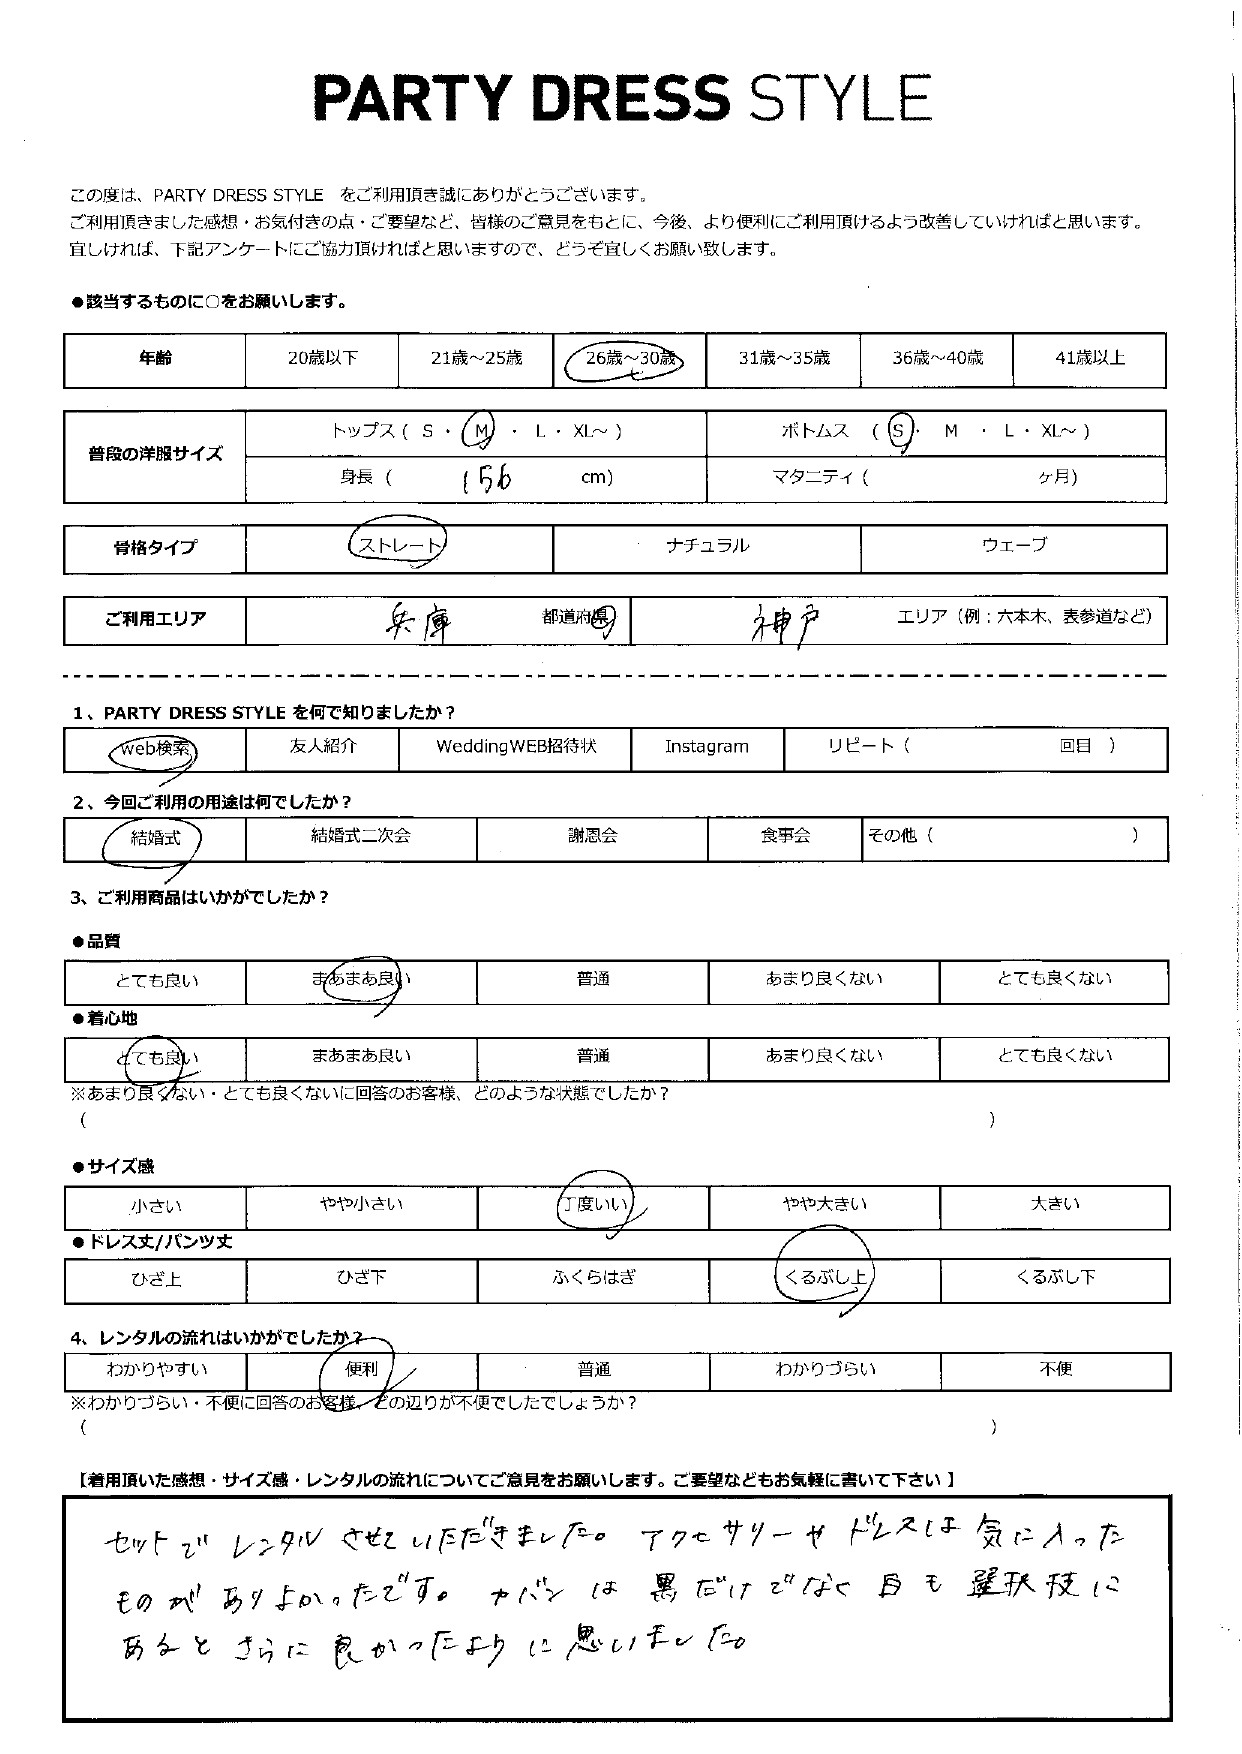 PARTY DRESS STYLE
この度は、PARTY DRESS STYLE をご利用頂き誠にありがとうございます。
ご利用頂きました感想・お気付きの点・ご要望など、皆様のご意見をもとに、今後、より便利にご利用頂けるよう改善していければと思います。
宜しければ、下記アンケートにご協力頂ければと思いますので、どうぞ宜しくお願い致します。
●該当するものに○をお願いします。
年齢 20歳以下 21歳～25歳 26歳～30歳 31歳～35歳 36歳～40歳 41歳以上
普段の洋服サイズ トップス ( S ・ M ・ L ・ XL～ ) ボトムス ( S ・ M ・ L ・ XL～ )
身長 ( 156 cm) マタニティ ( ヶ月)
骨格タイプ ストレート ナチュラル ウェーブ
ご利用エリア 兵庫 都道府県 神戸 エリア（例：六本木、表参道など）
1、PARTY DRESS STYLE を何で知りましたか？
web検索 友人紹介 WeddingWEB招待状 Instagram リピート ( 回目 )
2、今回ご利用の用途は何でしたか？
結婚式 結婚式二次会 謝恩会 食事会 その他 ( )
3、ご利用商品はいかがでしたか？
●品質
とても良い まあまあ良い 普通 あまり良くない とても良くない
●着心地
とても良い まあまあ良い 普通 あまり良くない とても良くない
※あまり良くない・とても良くないに回答のお客様、どのような状態でしたか？
( )
●サイズ感
小さい やや小さい 丁度いい やや大きい 大きい
●ドレス丈/パンツ丈
ひざ上 ひざ下 ふくらはぎ くるぶし上 くるぶし下
4、レンタルの流れはいかがでしたか？
わかりやすい 便利 普通 わかりづらい 不便
※わかりづらい・不便に回答のお客様、どの辺りが不便でしたでしょうか？
( )
【着用頂いた感想・サイズ感・レンタルの流れについてご意見をお願いします。ご要望などもお気軽に書いて下さい 】
セットで レンタル させていただきました。 アクセサリーや ドレスは 気に入った
ものが ありよかったです。 カバン は 黒だけでなく 白も 選択技に
あると さらに 良かったように思いました。